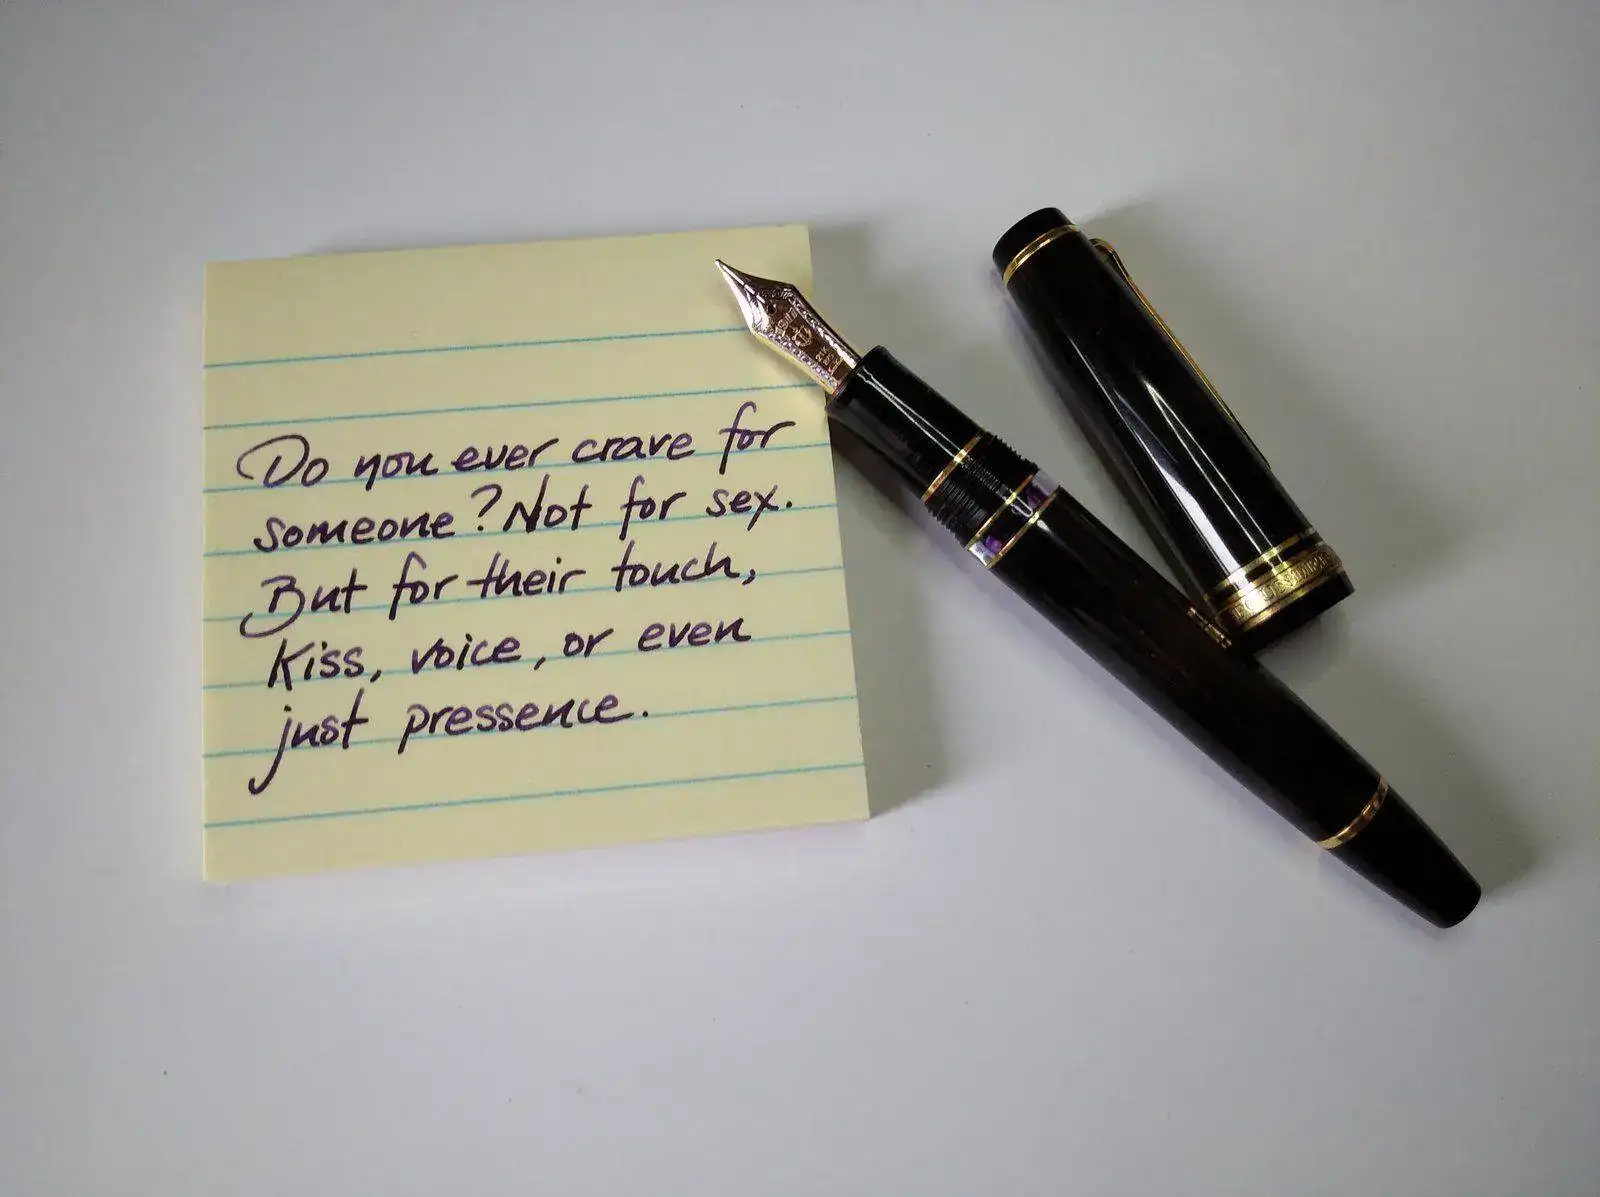 Do you ever crave for
someone? Not for sex.
But for their touch,
Kiss, voice, or even
just pressence.